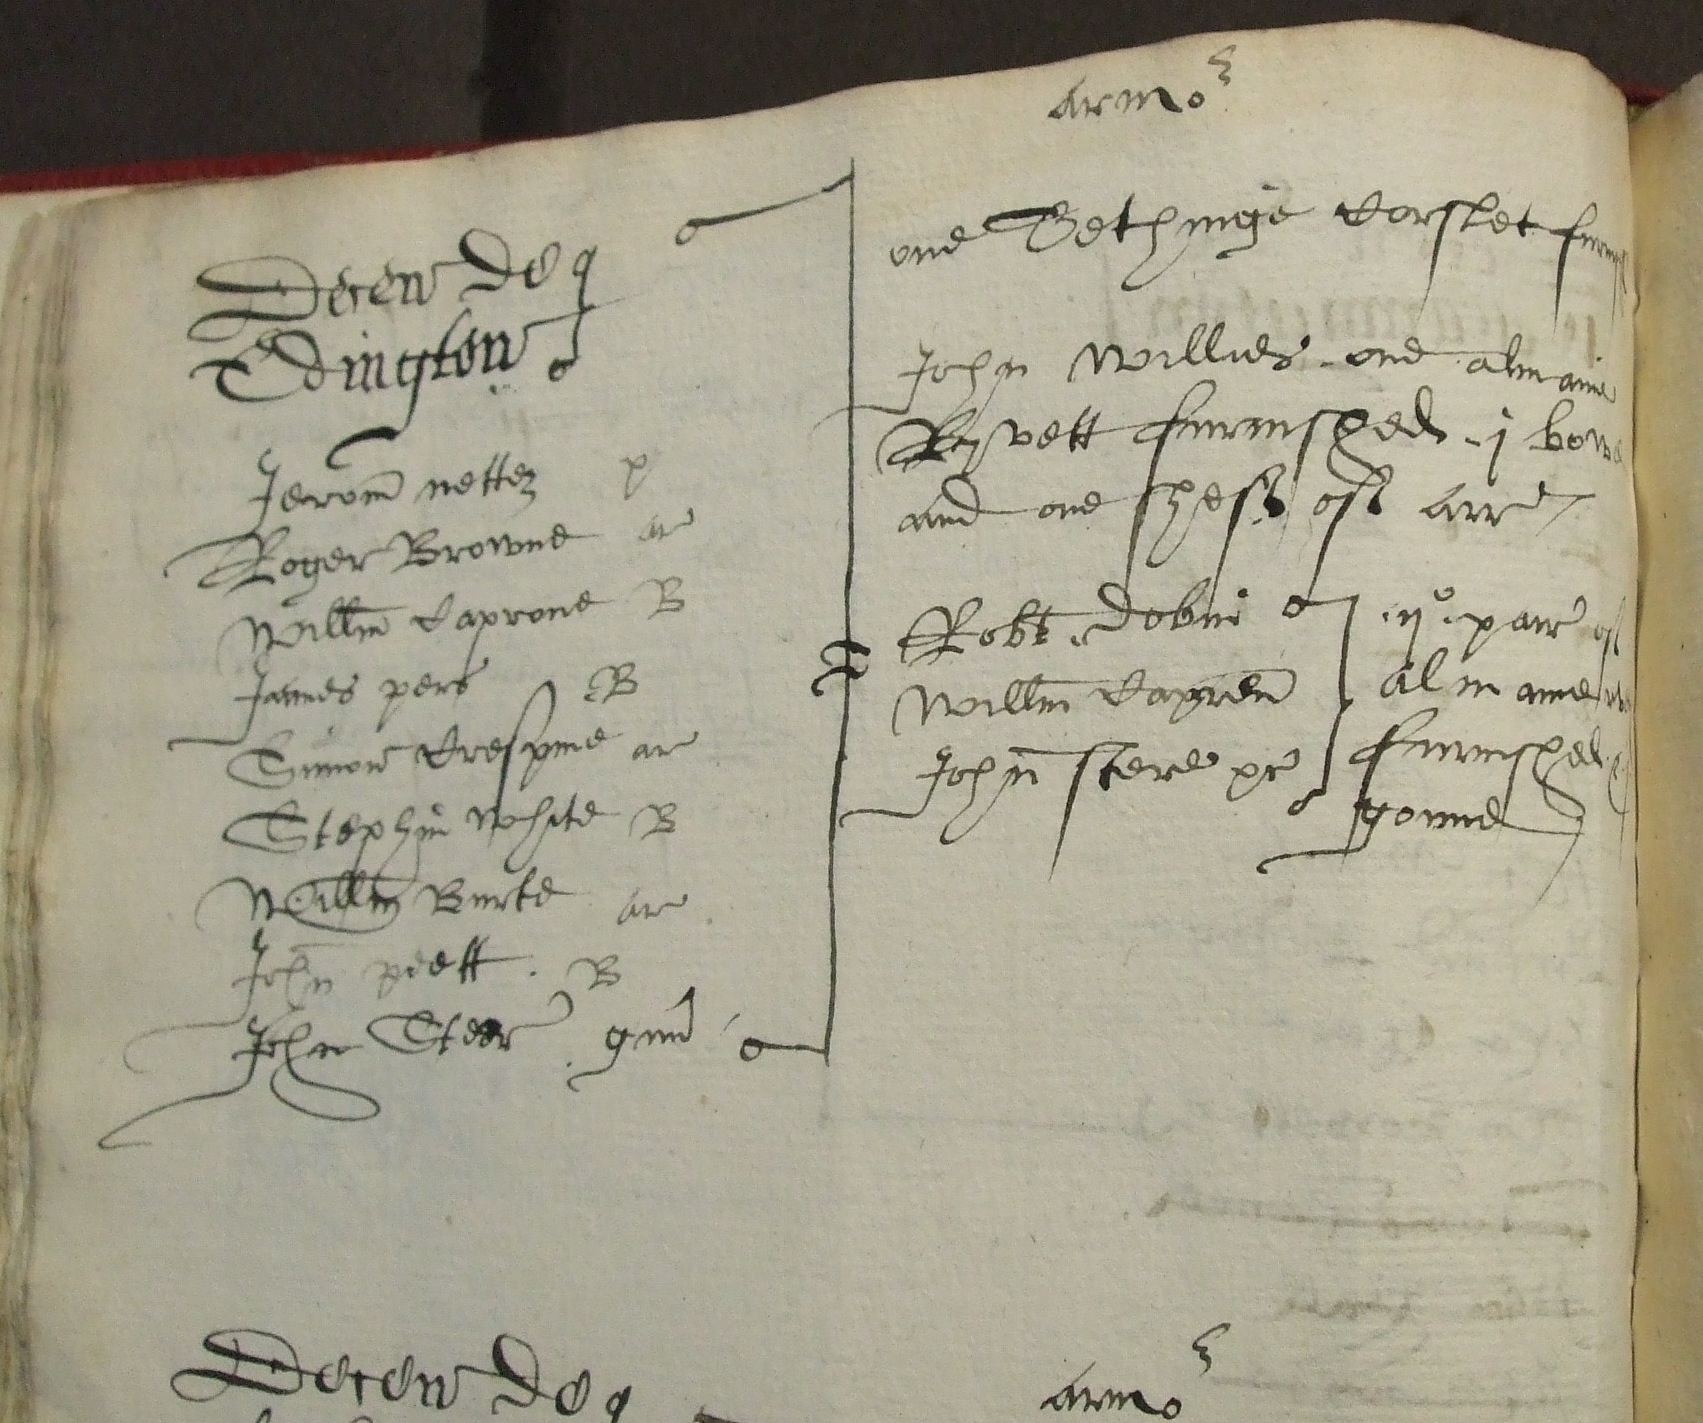 armor
Decen de
Edington
Jerom nettes p
Roger Browne ar
Willm Caprone B
James pers B
Simon Crespine ar
Stephin white B
Willm Burte ar
John piett B
John Steer gunn
one Bethinge Corslet furnysh
John Willies one almaine
Ryvett furnished j bowe
and one sheff off arr
Robt Dobin
Willm Capren
John stere pr
ij pair off
almaine
furnished
gonne
Decen de
armor